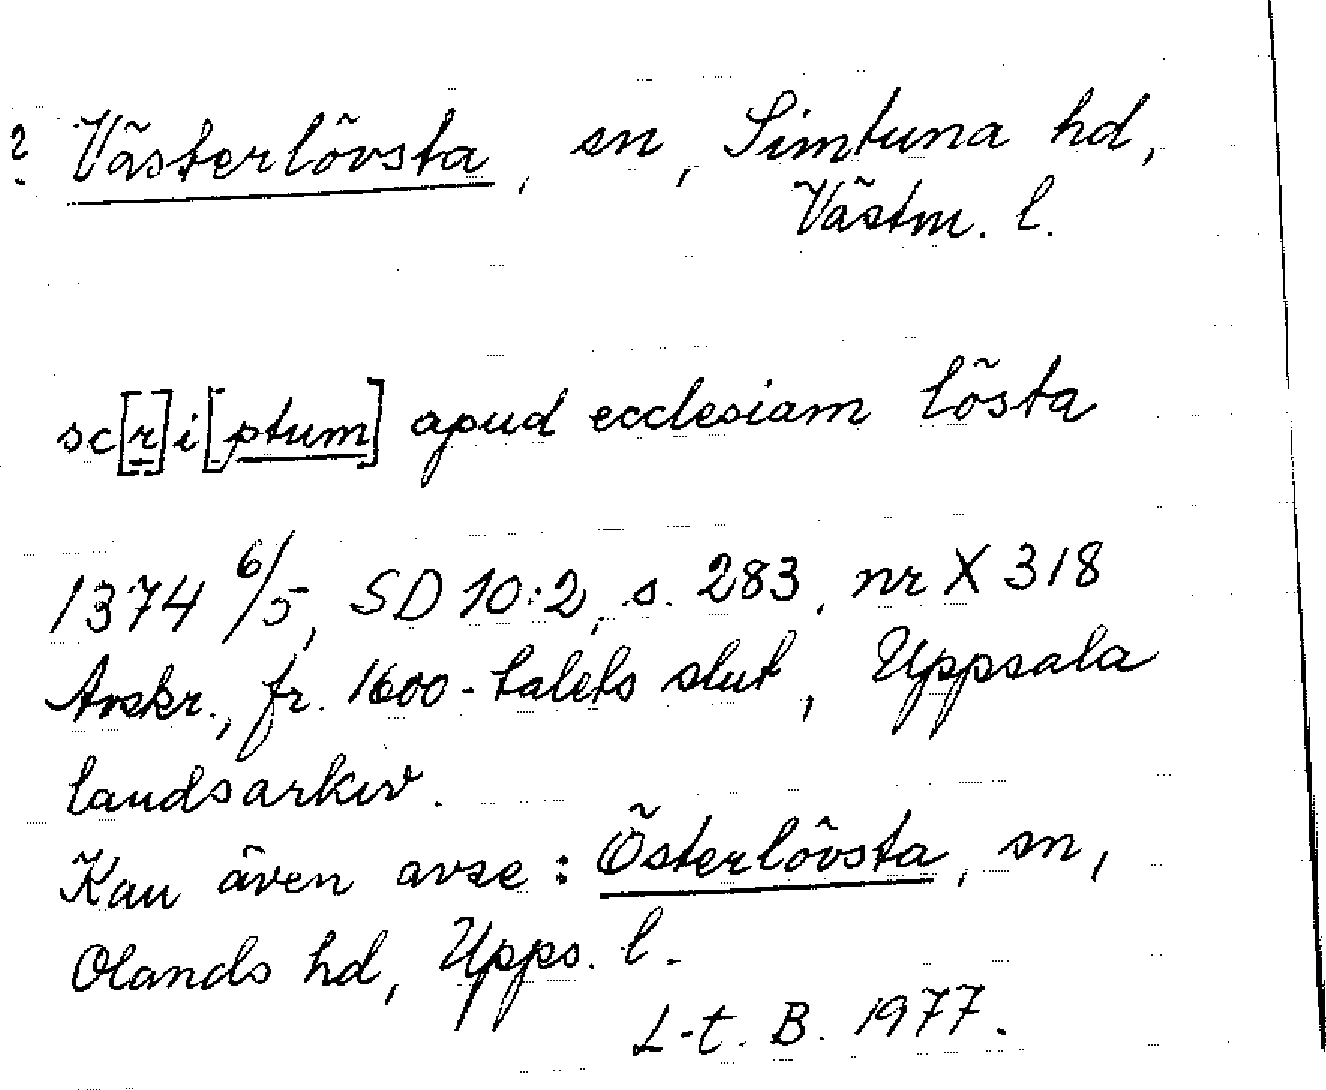 ? Västerlövsta, sn, Simtuna hd,
Västm. l.
sc[r]i[ptum] apud ecclesiam lösta
1374 6/5, SD 10:2, s. 283, nr X 318
Avskr., fr. 1600-talets slut, Uppsala
landsarkiv.
Kan även avse: Österlövsta, sn,
Olands hd, Upps. l.
L-t. B. 1977.